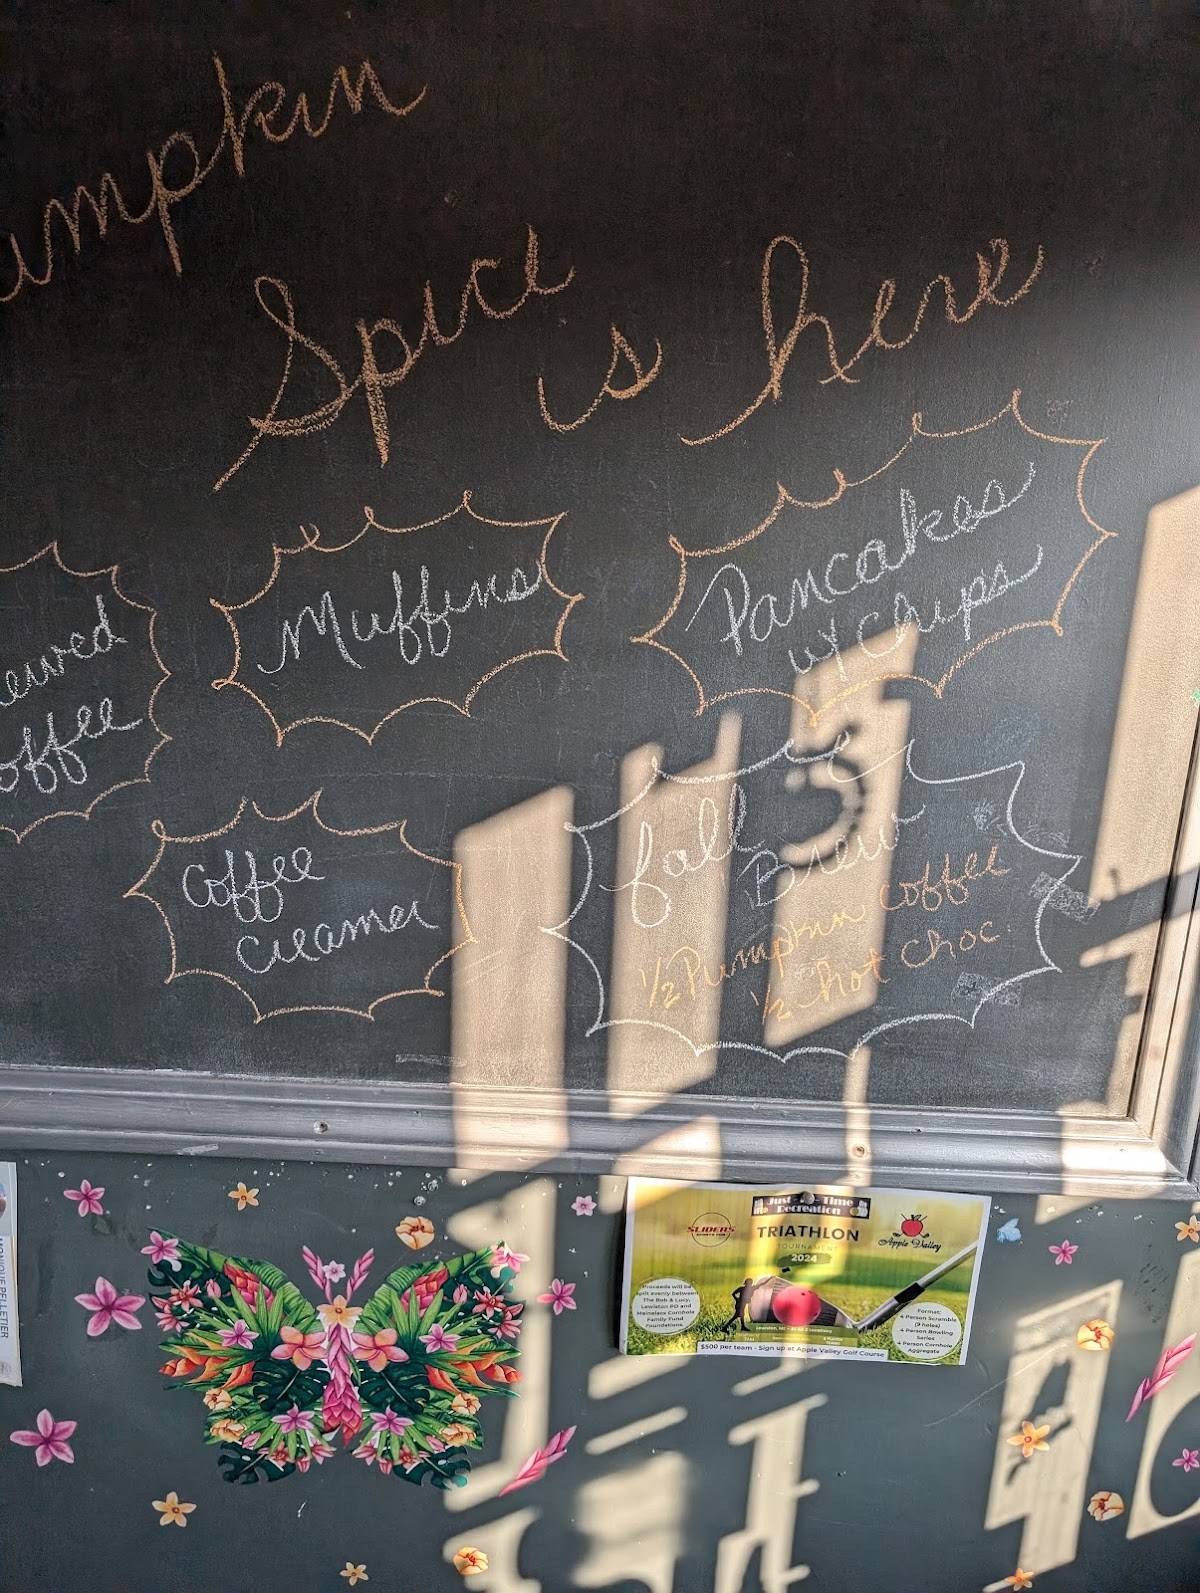 umpkin
Spice
is here
ewed
offee
Muffins
Pancakes
w/ Chips
Coffee
Creamer
fall
Brew
1/2 Pumpkin coffee
1/2 hot choc.
Just-in-Time
Recreation
SLIDERS
TRIATHLON
TOURNAMENT
2024
Apple Valley
Proceeds will be
split evenly between
The Rob & Lucy,
Lewiston PD and
Maineiacs Cornhole
Family Fund
Foundations.
Format:
4 Person Scramble
(9 holes)
4 Person Bowling
Series
4 Person Cornhole
Aggregate
$500 per team - Sign up at Apple Valley Golf Course
MONIQUE PELLETIER